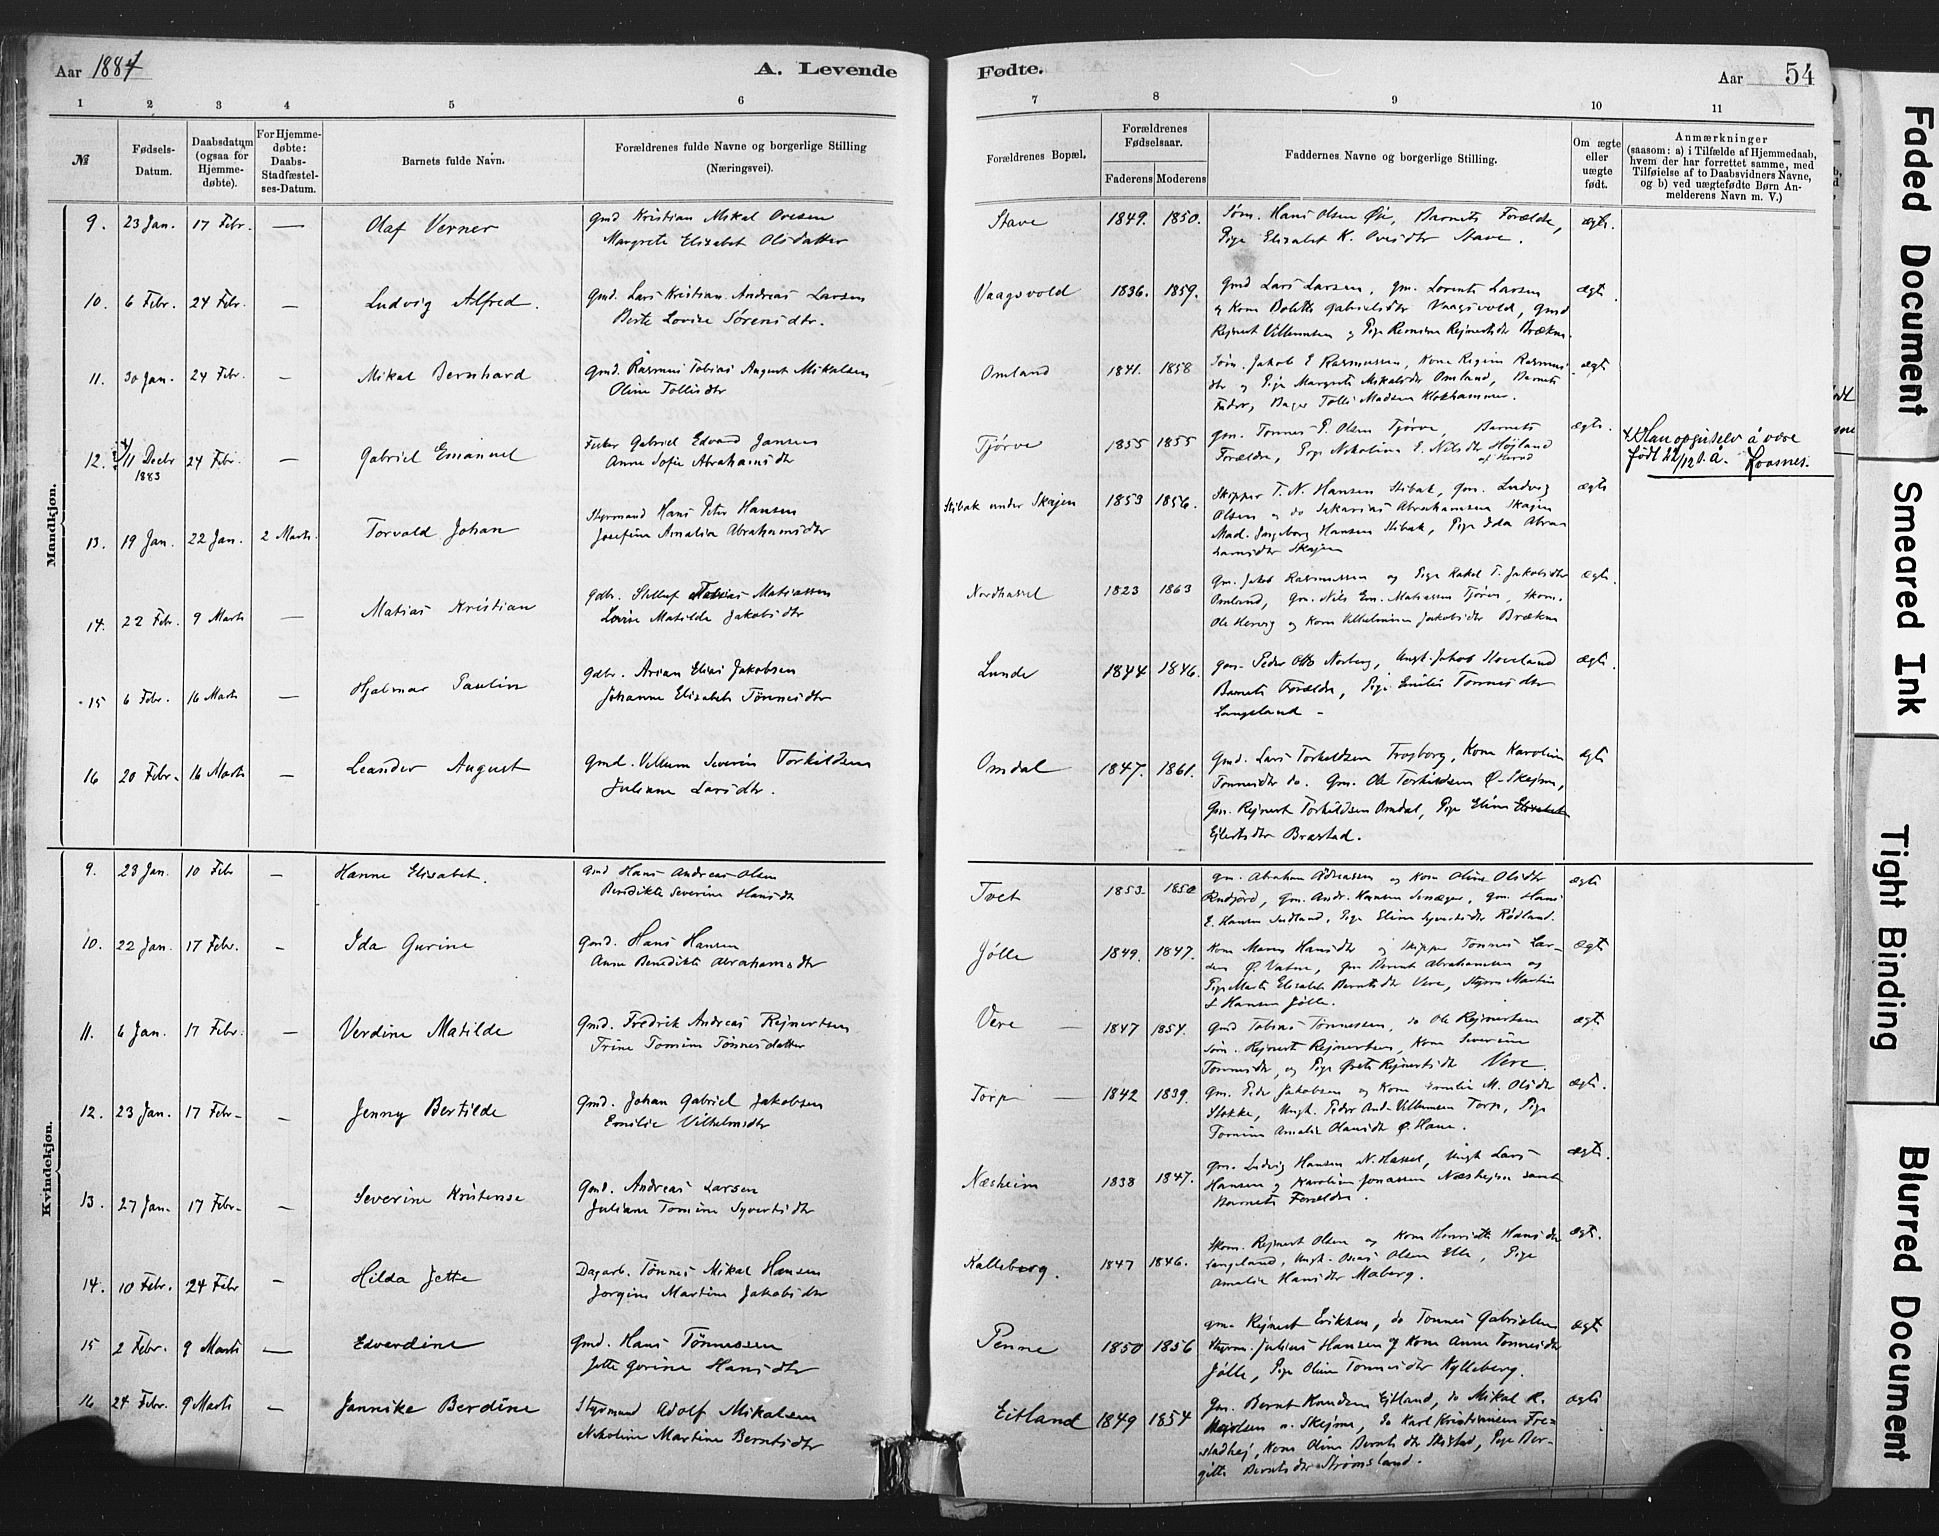 Aar 1884
A. Levende
1 2 3 4 5 6
№
Fødsels-Datum.
Daabsdatum (ogsaa for Hjemmedøbte).
For Hjemmedøbte: Daabs-Stadfæstelses-Datum.
Barnets fulde Navn.
Forældrenes fulde Navne og borgerlige Stilling (Næringsvei).
Mandkjøn.
9. 23 Jan. 17 Febr. — Olaf Verner Gmd Kristian Mikal Ovesen
Margrete Elisabet Olsdatter
10. 6 Febr. 24 Febr. — Ludvig Alfred. Gmd. Lars Kristian Andreas Larsen
Berte Lovise Sørensdtr.
11. 30 Jan. 24 Febr. — Mikal Bernhard Gmd. Rasmus Tobias August Mikalsen
Oline Tollisdtr
12. 11 Decbr 1883 24 Febr. — Gabriel Emanuel Fisker Gabriel Edvard Jansen
Anne Sofie Abrahamsdtr
13. 19 Jan. 22 Jan. 2 Marts. Torvald Johan Styrmand Hans Peter Hansen
Josefine Amalie Abrahamsdtr
14. 22 Febr. 9 Marts — Matias Kristian Gdbr. Matiassen
Lovise Matilde Jakobsdtr
15 6 Febr. 16 Marts — Hjalmar Paulin Gdbr. Arian Elias Jakobsen
Johanne Elisabet Tønnesdtr
16 20 Febr. 16 Marts — Leander August Gmd. Vellum Severin Torkildsen
Juliane Larsdtr.
Kvindekjøn.
9. 23 Jan. 10 Febr — Hanne Elisabet. Gmd Hans Andreas Olsen
Benedikte Severine Hansdtr
10. 22 Jan. 17 Febr. — Ida Gurine Gmd. Hans Hansen
Anne Benedikte Abrahamsdtr
11. 6 Jan. 17 Febr. — Verdine Matilde Gmd. Fredrik Andreas Rejnertsen
Trine Tomine Tønnesdatter
12. 23 Jan. 17 Febr. — Jenny Bertilde Gmd. Johan Gabriel Jakobsen
Emilie Vilhelmsdtr
13. 27 Jan. 17 Febr. — Severine Kristense Gmd. Andreas Larsen
Juliane Tomine Syvertsdtr
14. 10 Febr. 24 Febr — Hilda Jette Dagarb. Tønnes Mikal Hansen
Jorgine Martine Jakobsdtr
15 2 Febr. 9 Marts — Edverdine Gmd. Hans Tønnessen
Jette Gurine Hansdtr
16 24 Febr. 9 Marts — Jannike Berdine Styrmand Adolf Mikalsen
Nekoline Martine Berntsdtr
Fødte.
Aar 54
7 8 9 10 11
Forældrenes Bopæl.
Forældrenes Fødselsaar.
Faderens Moderens
Faddernes Navne og borgerlige Stilling.
Om ægte eller uægte født.
Anmærkninger
(saasom: a) i Tilfælde af Hjemmedaab, hvem der har forrettet samme, med Tilføielse af to Daabsvidners Navne, og b) ved uægtefødte Børn Anmelderens Navn m. V.)
Stave 1849. 1850. Søm. Hans Olsen Øie, Barnets Forældre, ægte.
Pige Elisabet K. Ovesdtr Stave.
Vaagsvold 1836. 1859. Gmd Lars Larsen, gm. Lorents Larsen ægte.
og Kone Bolette Gabrielsdtr Vaagsvold, Gmd
Rejnert Villumsen og Pige Rejnertsdtr Brækne.
Omland 1841. 1858 Søm. Jakob E Rasmussen, Kone Regine Rasmus- ægte
dtr og Pige Margrete Mikalsdtr Omland, Barnets
Fader, Bager Tolli Madsen Klokhammer.
Tjörve 1855 1855 gm. Tønnes E. Olsen Tjörve, Barnets ægte.
Forældre, Pige Nekoline E. Nilsdtr Højland
af Herad
Han opgir selv å være født 22/12 s. a. Loasnes.
Stibak under Skajen 1853 1856. Skipper T. N. Hansen Stibak, gm. Ludvig ægte
Olsen og do Sakarias Abrahamsen Skajen
Mad. Ingeborg Hansen Stibak, Pige Ida Abra-
hamsdtr Skajen
Nordhassel 1823 1863 gm. Jakob Rasmussen og Pige Rakel T. Jakobsdtr ægte.
Omland, Gm. Nils Em. Matiassen Tjörve, Skom.
Ole Hervig og Kone Vilhelmine Jakobsdtr Brækne
Lunde 1844 1846. gm. Peder Otto Norberg, Ungk. Jakob Hoveland ægte.
Barnets Forældre, Pige Emilie Tønnesdtr
Langeland —
Omdal 1847. 1861. Gmd. Lars Torkildsen Frogborg, Kone Karoline ægte
Tønnesdtr do. Gm. Ole Torkildsen Ø. Skejme,
Gm. Rejnert Torkildsen Omdal, Pige Eline
Ejlertsdtr Brastad.
Tvet 1853. 1850 gm. Abraham Adreassen og Kone Oline Olsdtr ægte
Rudjord, gm. Andr. Hansen gm. Hans
E. Hansen Pige Eline Syvertsdtr Rødland.
Jölle 1849. 1847. Kone Maren Hansdtr og Skipper Tønnes Lar- ægte
sen Ø. Vatne, gm Bernt Abrahamsen og
Pige Marte Elisabet Berntsdtr Vere, Styrm Martin
Hansen Jölle.
Vere — 1847 1854. Gmd Tobias Tønnessen, do Ole Rejnertsen ægte
Søm. Rejnert Rejnertsen, Kone Severine
Tønnesdtr, og Pige Grete Rejnertsdtr Vere.
Torp — 1842 1839. gm. Peder Jakobsen og Kone Emilie M. Olsdtr ægte.
Stokke, Ungk. Peder And. Villumsen Torp, Pige
Tomine Amalie Olausdtr Ø. Hane.
Næsheim 1838 1847. gm. Ludvig Hansen N. Hassel, Ungk Lars ægte.
Hansen og Karoline Jonassen Næshejm samt
Barnets Forældre.
Kalleberg. 1847 1846. Skom. Rejnert Olsen og Kone Henriette Hansdtr ægte.
Langeland, Ungk. Olsen Elle, Pige
Amalie Hansdtr Maberg.
Penne 1850 1856 gm. Rejnert Eriksen, do Tønnes Gabrielsen ægte
Styrm. Julius Hansen og Kone Anne Tønnesdtr
Jölle, Pige Oline Tønnesdtr Kylleberg.
Eitland 1849 1854 Gm. Bernt Knudsen Eitland, do Mikal R. ægte
n. Skejme, do Karl Kristiansen Fre-
stadhej, Kone Oline Berntsdtr Pige Ber-
gitte Berntsdtr Strømsland.
Faded Document
Smeared Ink
Tight Binding
Blurred Document